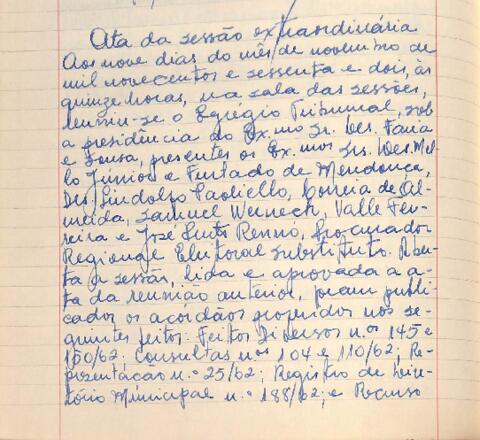 Ata da sessão extraordinária
Aos nove dias do mês de novembro de
mil novecentos e sessenta e dois, às
quinze horas, na sala das sessões,
reuniu-se o Egrégio Tribunal, sob
a presidência do Ex.mo Sr. Des. Faria
e Sousa, presentes os Ex.mos Srs. Des. Mel-
lo Júnior e Furtado de Mendonça,
Drs. Lindolfo Paoliello, Correia de Al-
meida, Samuel Werneck, Valle Fer-
reira e José Luis Rennó, Procurador
Regional Eleitoral Substituto. Aber-
ta a sessão, lida e aprovada a a-
ta da reunião anterior, foram publi-
cados os acórdãos proferidos nos se-
guintes feitos: Feitos Diversos n.os 145 e
150/62; Consultas n.os 104 e 110/62; Re-
presentação n.º 25/62; Registro de Dire-
tório Municipal n.º 188/62; e Recurso